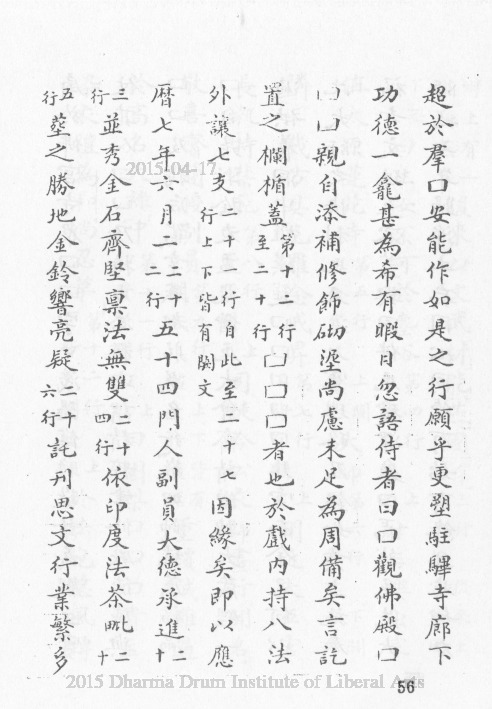 超於羣口安能作如是之行願乎更塑駐驆寺廊下
功德一龕甚為希有暇日忽語侍者曰口觀佛殿口
口口親自添補修飾砌塗尚慮未足為周備矣言訖
置之欄楯蓋第十二行至二十行口口口者也於戲內持八法
外讓七支二十一行自此至二十七行上下皆有闕文因緣矣即以應
曆七年六月二二十二行十五十四門人副員大德承進二十
三行並秀金石齊堅稟法無雙二十四行依印度法荼毗二十
五行塟之勝地金鈴響亮疑十六行託刊思文行業繁多
2015-04-17
2015 Dharma Drum Institute of Liberal Arts
56